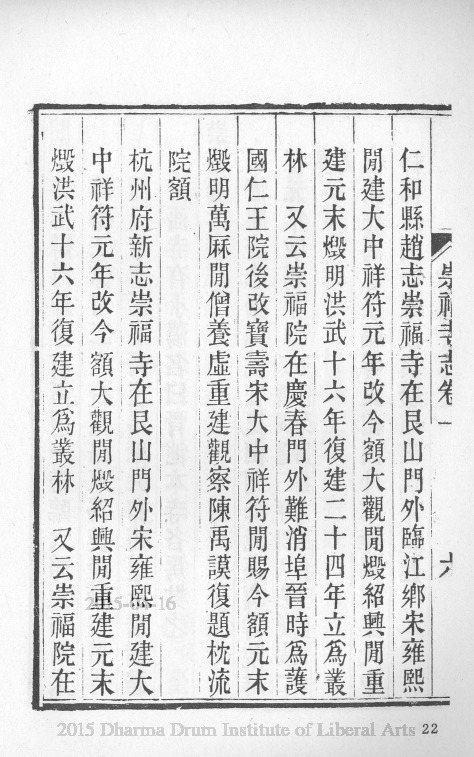 崇福寺志卷一 六
仁和縣趙志崇福寺在艮山門外臨江鄉宋雍熙
閒建大中祥符元年改今額大觀閒燬紹興閒重
建元末燬明洪武十六年復建二十四年立爲叢
林 又云崇福院在慶春門外難消埠晉時爲護
國仁王院後改寶壽宋大中祥符閒賜今額元末
燬明萬厤閒僧養虛重建觀察陳禹謨復題枕流
院額
杭州府新志崇福寺在艮山門外宋雍熙閒建大
中祥符元年改今額大觀閒燬紹興閒重建元末
燬洪武十六年復建立爲叢林 又云崇福院在
2015 Dharma Drum Institute of Liberal Arts 22